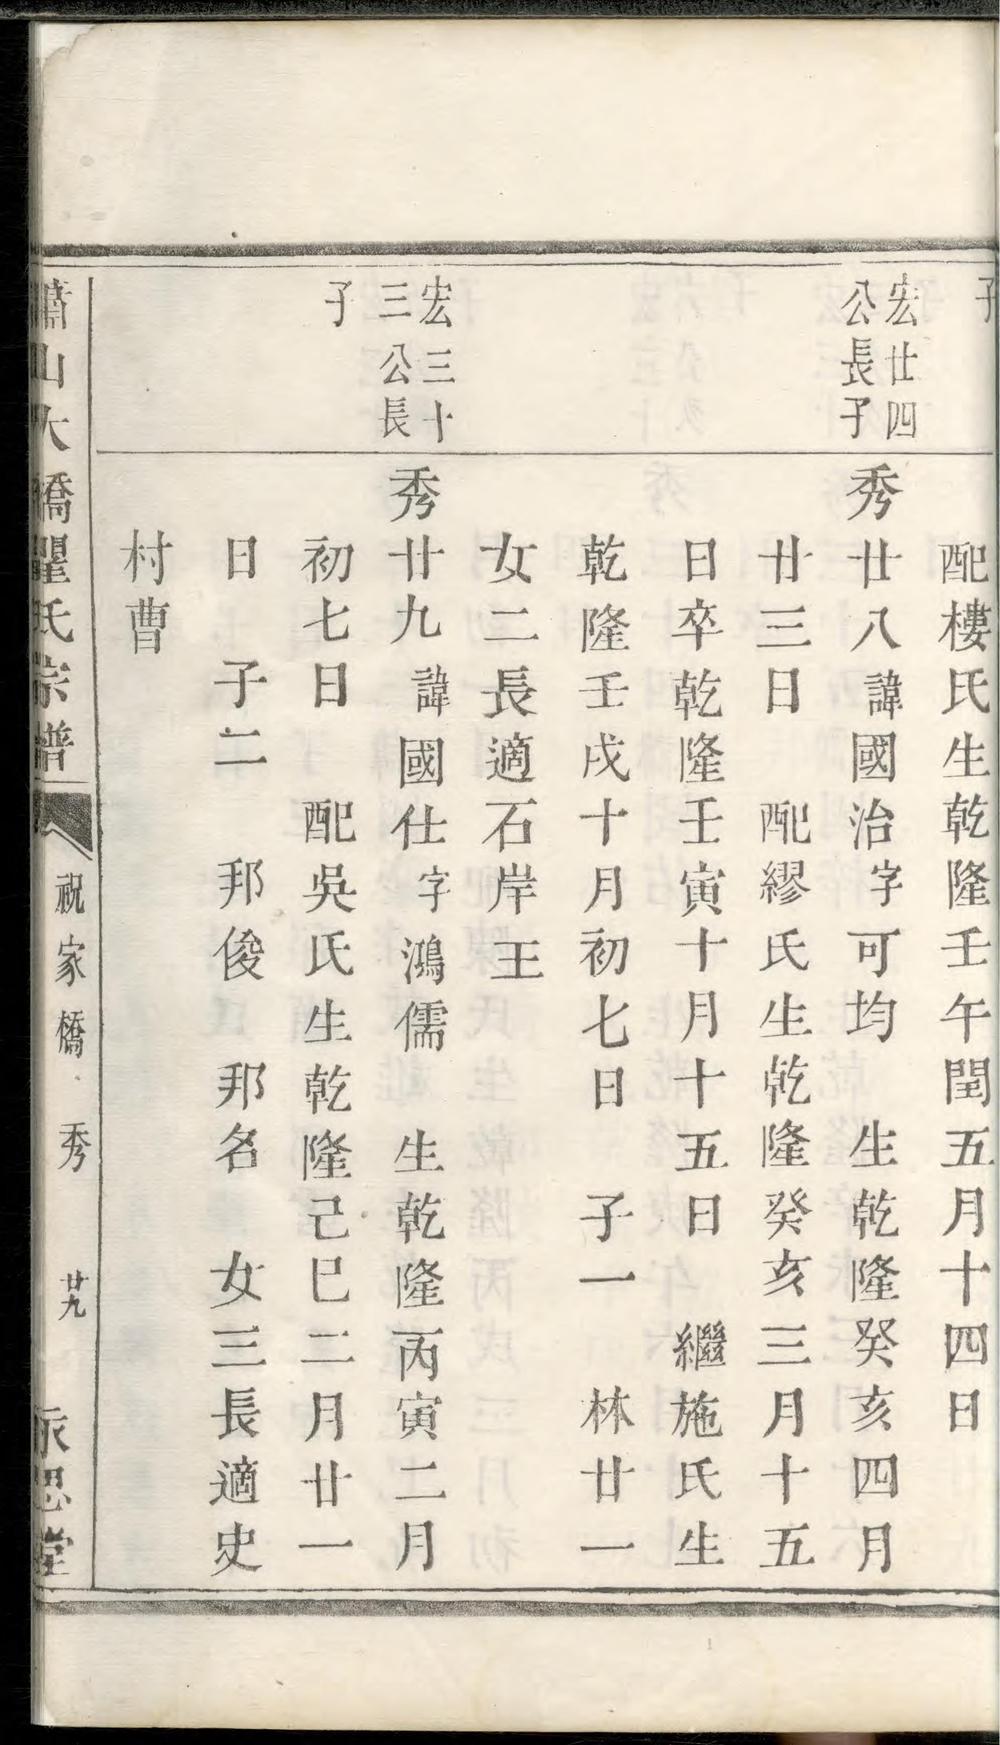 子
配樓氏生乾隆壬午閏五月十四日
宏廿四
公長子
秀廿八諱國治字可均 生乾隆癸亥四月
廿三日 配繆氏生乾隆癸亥三月十五
日卒乾隆壬寅十月十五日 繼施氏生
乾隆壬戌十月初七日 子一 林廿一
女二長適石岸王
宏三十
三公長
子
秀廿九諱國仕字鴻儒 生乾隆丙寅二月
初七日 配吳氏生乾隆己巳二月廿一
日 子二 邦俊 邦名 女三長適史
村曹
蕭山大橋瞿氏宗譜 祝家橋 秀 廿九 思堂